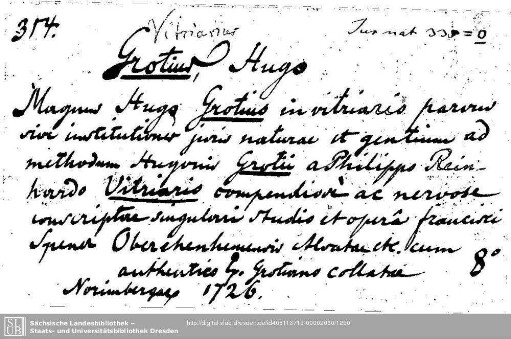 314. Vitriarius Jus nat 33 = 0
Grotius, Hugo
Magnus Hugo Grotius in vitriario parvus
sive institutiones juris naturae et gentium ad
methodum Hugonis Grotii a Philippo Rein-
hardo Vitriario compendiose ac nervose
conscriptae singulari studio et operâ francisci
Spener Oberehenhemensis Alsatae etc. cum
authentico Grotiano collatae 8°
Norimbergae 1726.
Sächsische Landesbibliothek –
Staats- und Universitätsbibliothek Dresden